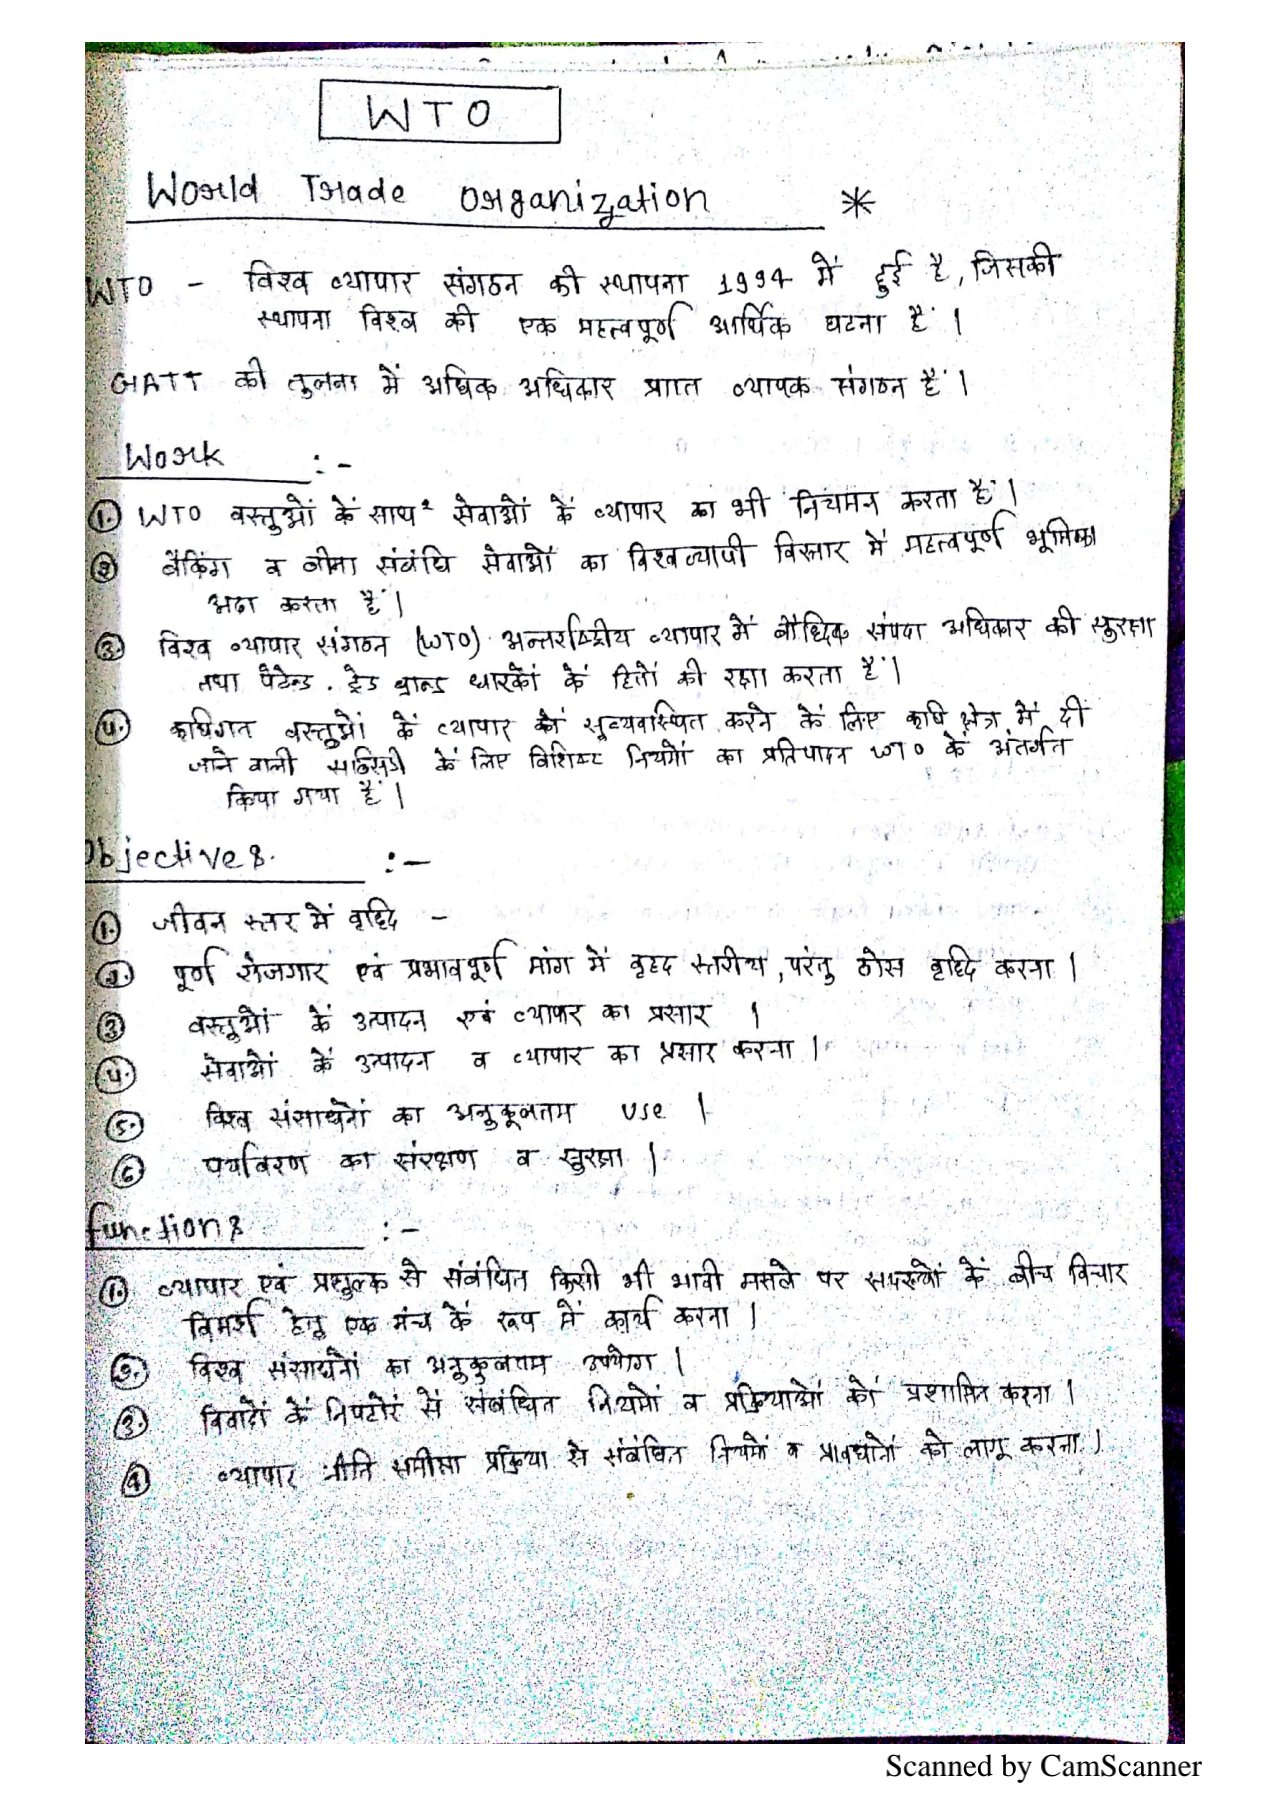 WTO
World Trade Organization *
WTO - विश्व व्यापार संगठन की स्थापना 1994 में हुई है, जिसकी
स्थापना विश्व की एक महत्वपूर्ण आर्थिक घटना है ।
GATT की तुलना में अधिक अधिकार प्राप्त व्यापक संगठन है ।
Work :-
1. WTO वस्तुओं के साथ² सेवाओं के व्यापार का भी नियमन करता है ।
2 बैंकिंग व बीमा संबंधि सेवाओं का विश्वव्यापी विस्तार में महत्वपूर्ण भूमिका
अदा करता है ।
3. विश्व व्यापार संगठन (WTO) अन्तर्राष्ट्रीय व्यापार में बौध्दिक संपदा अधिकार की सुरक्षा
तथा पेटेन्ड . ट्रेड ब्रान्ड धारकों के हितों की रक्षा करता है ।
4. कृषिगत वस्तुओं के व्यापार को सुव्यवस्थित करने के लिए कृषि क्षेत्र में दी
जाने वाली सब्सिडी के लिए विशिष्ट नियमों का प्रतिपादन WTO के अंतर्गत
किया गया है ।
Objectives. :-
1. जीवन स्तर में वृध्दि -
2. पूर्ण रोजगार एवं प्रभावपूर्ण मांग में वृहद स्तरीय, परंतु ठोस वृध्दि करना ।
3 वस्तुओं के उत्पादन एवं व्यापार का प्रसार ।
4. सेवाओं के उत्पादन व व्यापार का प्रसार करना ।
5. विश्व संसाधनों का अनुकूलतम use ।
6 पर्यावरण का संरक्षण व सुरक्षा ।
functions :-
1. व्यापार एवं प्रशुल्क से संबंधित किसी भी भावी मसले पर सदस्यों के बीच विचार
विमर्श हेतु एक मंच के रूप में कार्य करना ।
2. विश्व संसाधनों का अनुकुलतम उपयोग ।
3. विवादों के निपटारे से संबंधित नियमों व प्रक्रियाओं को प्रशासित करना ।
4 व्यापार नीति समीक्षा प्रक्रिया से संबंधित नियमों व प्रावधानों को लागू करना ।
Scanned by CamScanner